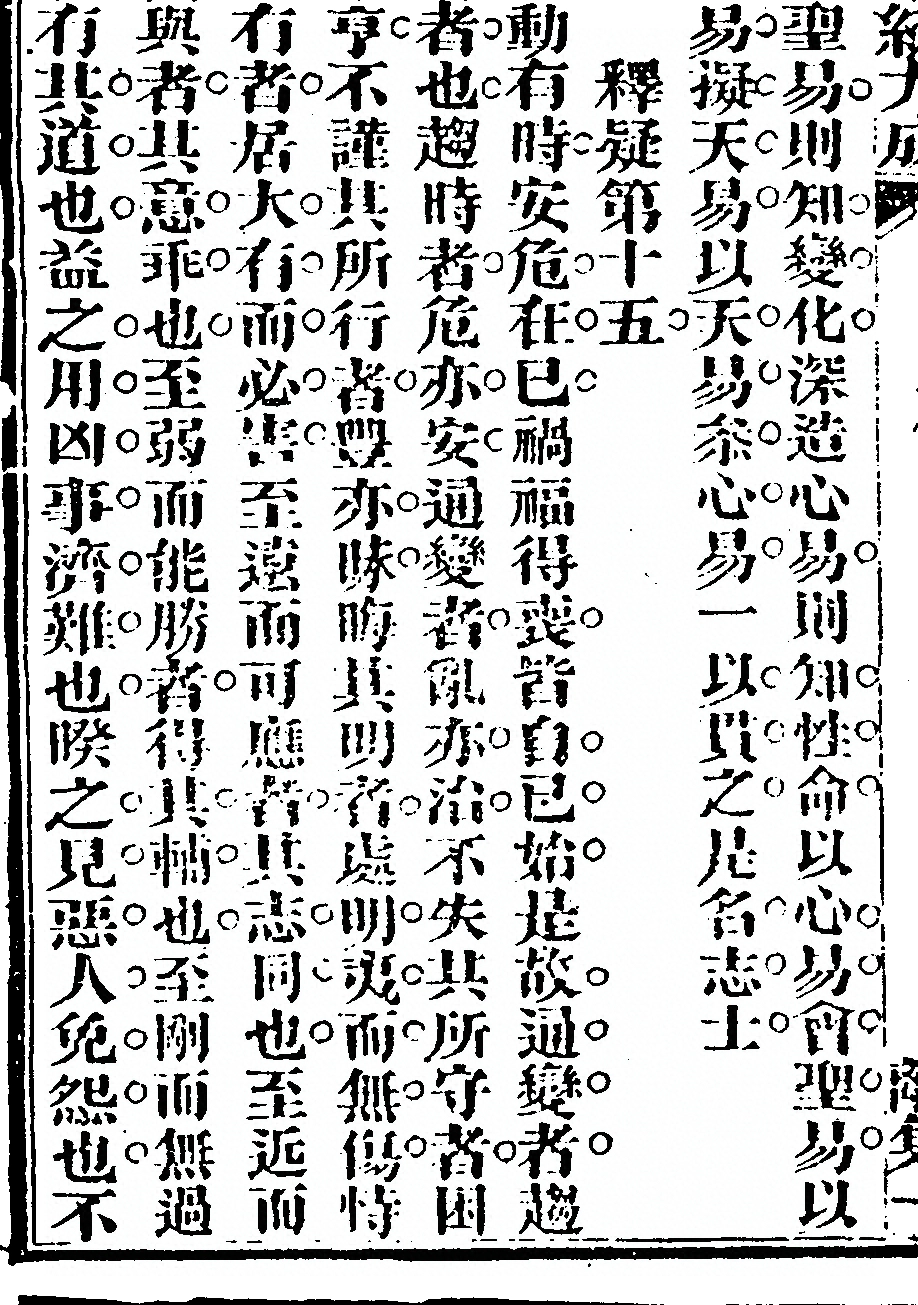 聖易則知變化深造心易則知性命以心易會聖易以
易擬天易以天易參心易一以貫之是名志士
釋疑第十五
動有時安危在已禍福得喪皆自已始是故通變者趨
者也趨時者危亦安通變者亂亦治不失其所守者困
亨不謹其所行者豐亦昧晦其明者處明夷而無傷恃
有者居大有而必害至遠而可應者其志同也至近而
與者其意乖也至弱而能勝者得其輔也至剛而無過
有其道也益之用凶事濟難也暌之見惡人免怨也不